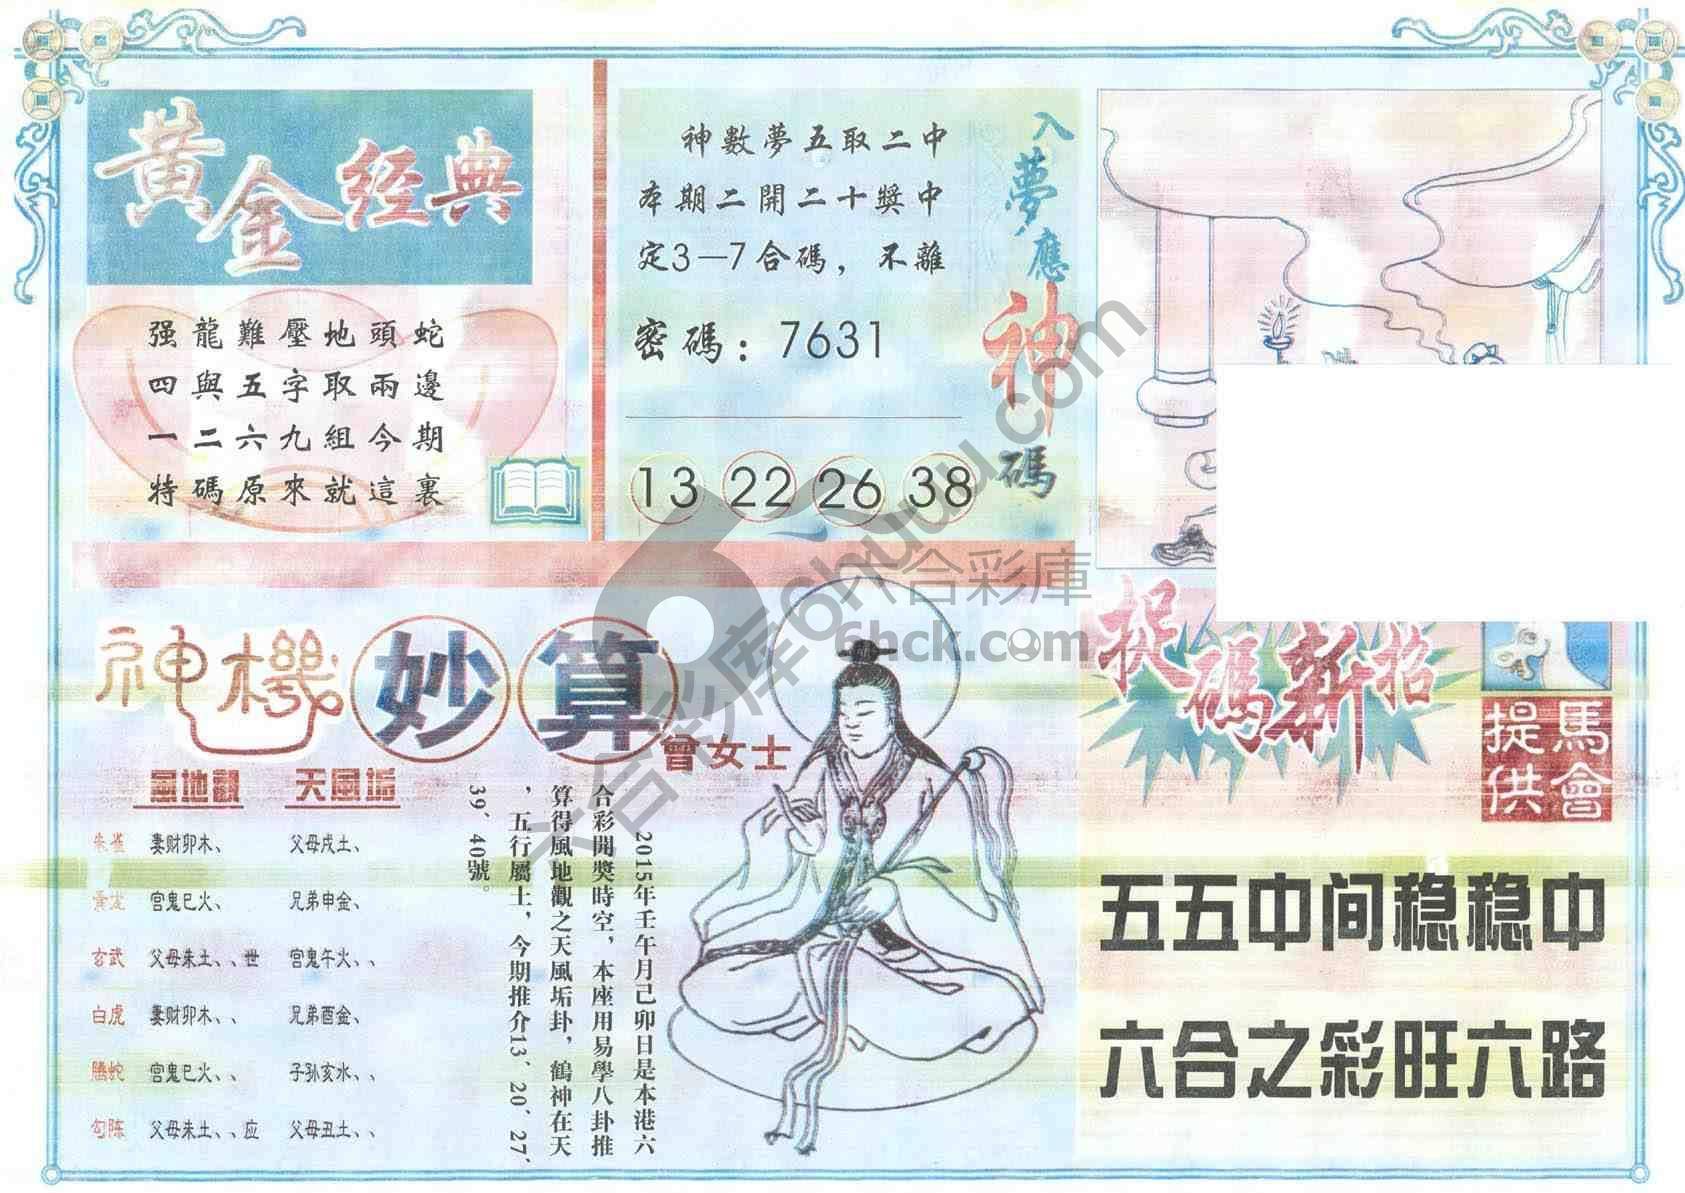 黃金经典
强龍難壓地頭蛇
四與五字取兩邊
一二六九組今期
特碼原來就這裏
入夢應神碼
神數夢五取二中
本期二開二十獎中
定3—7合碼，不離
密碼：7631
13 22 26 38
神機妙算
曾女士
風地觀 天風垢
朱雀 妻财卯木、 父母戌土、
青龙 宫鬼巳火、 兄弟申金、
玄武 父母未土、、世 宫鬼午火、、
白虎 妻财卯木、、 兄弟酉金、
腾蛇 宫鬼巳火、、 子孙亥水、、
勾陈 父母未土、、应 父母丑土、、
2015年壬午月己卯日是本港六
合彩開獎時空，本座用易學八卦推
算得風地觀之天風垢卦，鶴神在天
，五行屬土，今期推介13、20、27、
39、40號。
捉碼新招
馬會提供
五五中间稳稳中
六合之彩旺六路
六合彩库6huu.com
六合彩庫
6hck.com